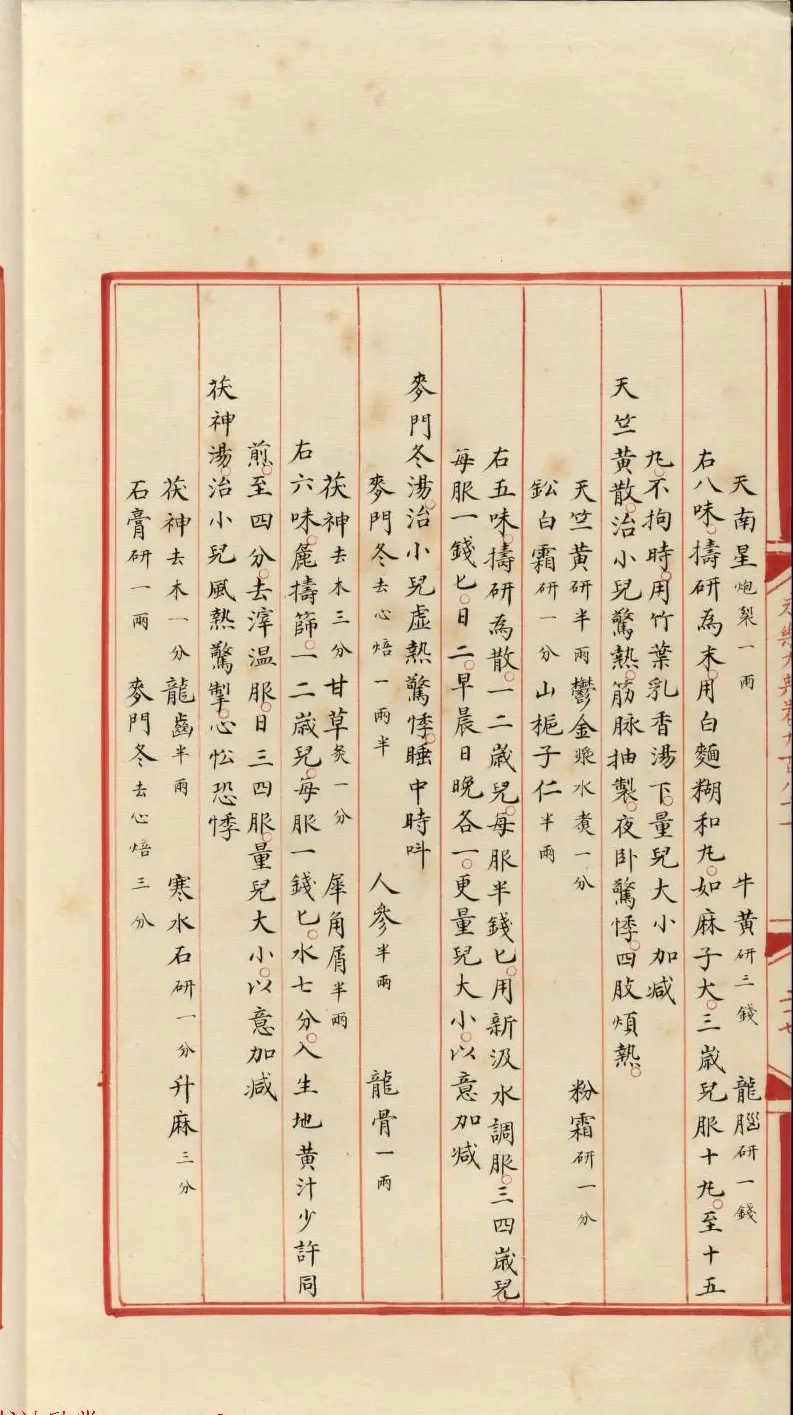 天南星炮裂一兩 牛黃研三錢 龍腦研一錢
右八味擣研為末用白麵糊和丸如麻子大三歲兒服十丸至十五
丸不拘時用竹葉乳香湯下量兒大小加減
天竺黃散治小兒驚熱筋脉抽製夜卧驚悸四肢煩熱
天竺黃研半兩 鬱金漿水煑一分 粉霜研一分
鈆白霜研一分 山梔子仁半兩
右五味擣研為散一二歲兒每服半錢匕用新汲水調服三四歲兒
每服一錢匕日二早晨日晚各一更量兒大小以意加減
麥門冬湯治小兒虛熱驚悸睡中時呌
麥門冬去心焙一兩半 人參半兩 龍骨一兩
茯神去木三分 甘草炙一分 犀角屑半兩
右六味麄擣篩一二歲兒每服一錢匕水七分入生地黃汁少許同
煎至四分去滓温服日三四服量兒大小以意加減
茯神湯治小兒風熱驚掣心忪恐悸
茯神去木一分 龍齒半兩 寒水石研一分 升麻三分
石膏研一兩 麥門冬去心焙三分